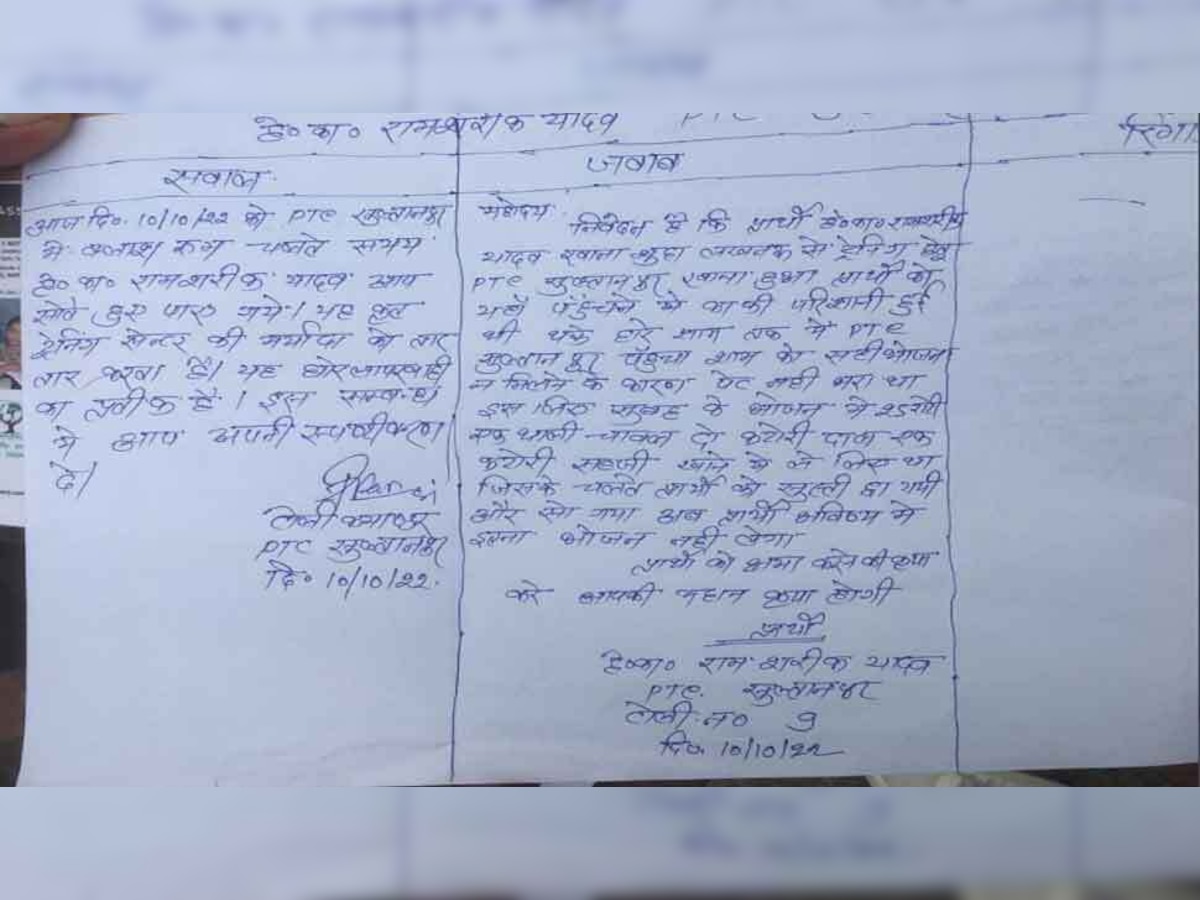 हे० का० रामशरीफ यादव PTC
सवाल
आज दि० 10/10/22 को PTC सुल्तानपुर
मे क्लास रूम चलते समय
हे० का० रामशरीफ यादव आप
सोते हुए पाए गये। यह कृत
ट्रेनिंग सेन्टर की मर्यादा को तार
तार करता है। यह घोर लापरवाही
का प्रतीक है। इस सम्बन्ध
मे आप अपनी स्पष्टीकरण
दे।
टोली कमाण्डर
PTC सुल्तानपुर
दि० 10/10/22.
जवाब
महोदय
निवेदन है कि प्रार्थी हे० का० रामशरीफ
यादव लखनऊ से ट्रेनिंग हेतु
PTC सुल्तानपुर रवाना हुआ प्रार्थी को
यहाँ पहुंचने मे काफी परिशानी हुई
थी थके हारे शाम तक मे PTC
सुल्तानपुर पहुँचा शाम को सही भोजन
न मिलने के कारण पेट नही भरा था
इस लिए सुबह के भोजन मे 25 रोटी
एक थाली चावल दो कटोरी दाल एक
कटोरी सब्जी खाने मे ले लिए था
जिसके चलते प्रार्थी को सुस्ती छा गयी
और सो गया अब प्रार्थी भविष्य मे
इतना भोजन नहीं लेगा
प्रार्थी को क्षमा करने की कृपा
करे आपकी महान कृपा होगी
प्रार्थी
हे०का० राम शरीफ यादव
PTC. सुल्तानपुर
टोली न० 9
दि० 10/10/22